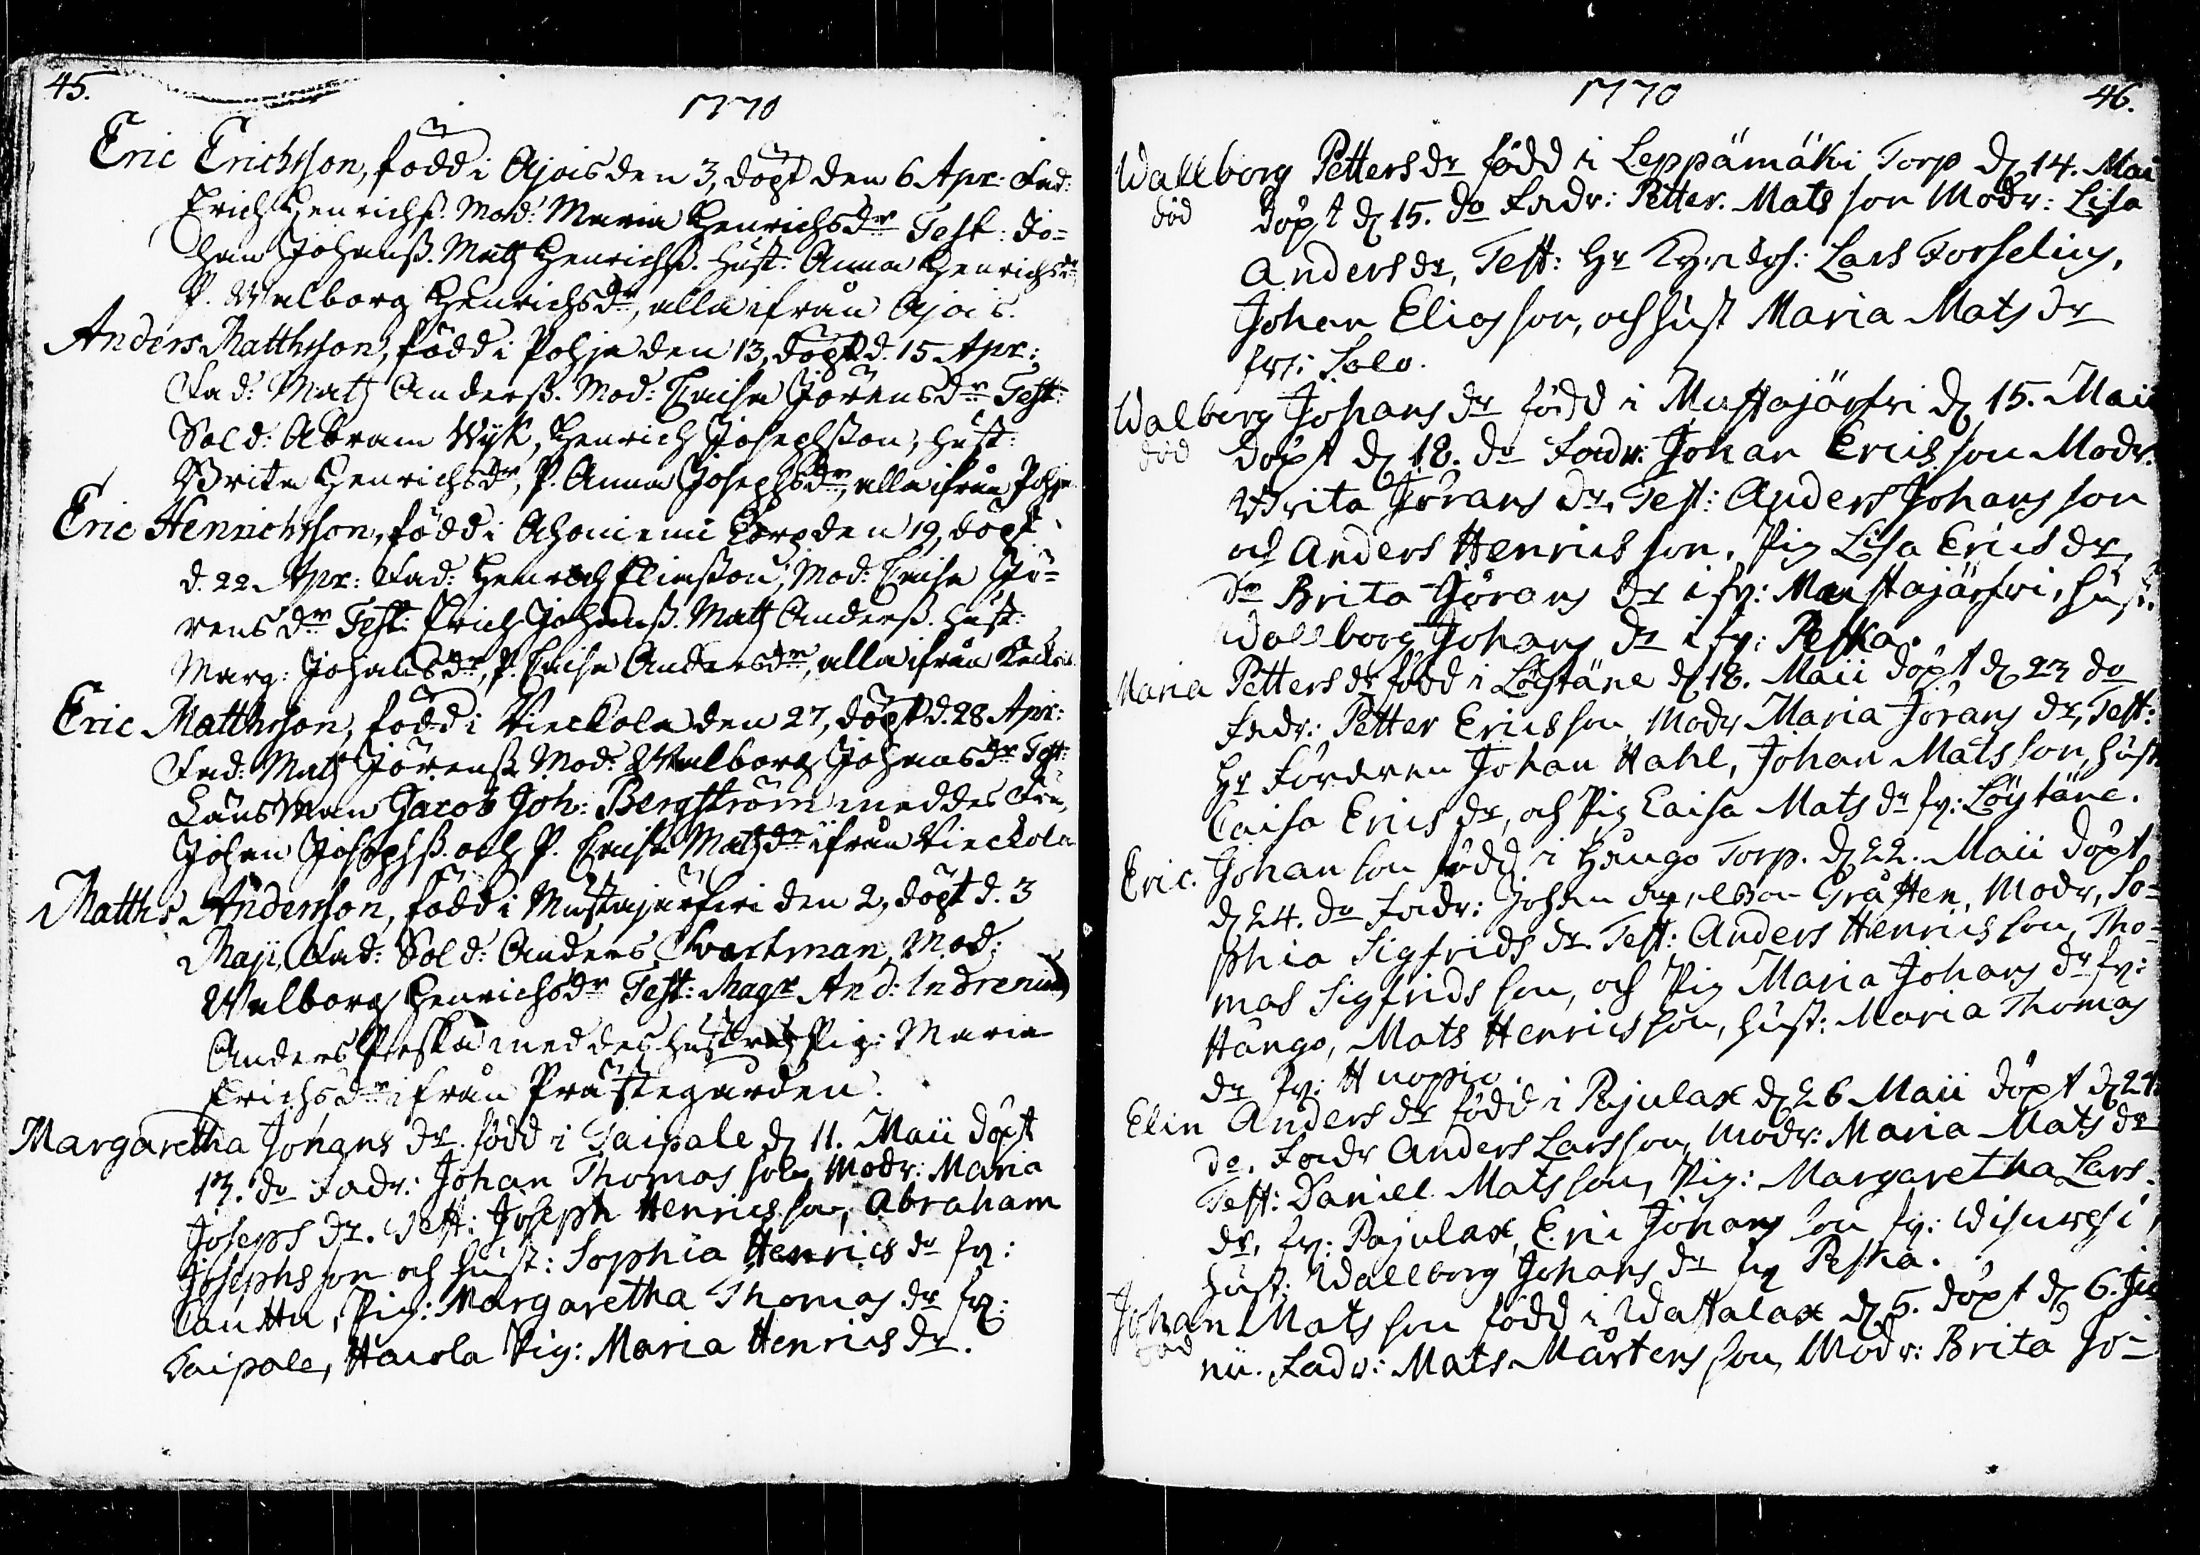 45.
1770
Eric Erichsson, född i Ajois den 3, döpt den 6 Apr: Fad:
Erich Henrichss. Mod: Maria Henrichsdr Test: Jo=
han Johanss. Matz Henrichss. Hust: Anna Henrichsdr,
P. Walborg Henrichsdr, alla ifrån Ajois.
Anders Matthsson, född i Pohja den 13, döpt d. 15 Apr:
Fad: Matz Anderss. Mod: Caisa Jöransdr Test:
Sold: Abram Wÿk, Henrich Josephsson, Hust:
Brita Henrichsdr, P. Anna Josephsdr, alla ifrån Pohja
Eric Henrichsson, född i Ahoniemi Torp den 19, döpt
d. 22 Apr: Fad: Henrich Eliasson, Mod: Caisa Jö=
rensdr Test: Erich Johanss. Matz Anderss. Hust:
Marg: Johansdr, P. Caisa Andersdr, alla ifrån
Eric Matthsson, född i Vieckola den 27, döpt d. 28 Apr:
Fad: Matz Jörenss. Mod: Walborg Johansdr Test:
Länsman Jacob Joh: Bergström med des Fru,
Johan Josephss. och P. Caisa Matzdr ifrån Vieckola
Matths Andersson, född i Mustajärfwi den 2, döpt d. 3
Maji, Fad: Sold: Anders Swartman, Mod:
Walborg Henrichsdr Test: Magr And: Indrenius
Anders Peska med des hustru Pig: Maria
Erichsdr ifrån Prästegården.
Margaretha Johans dr. född i Taipale d 11. Maii döpt
13. do Fadr: Johan Thomas son Modr: Maria
Josephs dr. Test: Joseph Henrics son, Abraham
Josephs son och Hust: Sophia Henrics dr fr:
Cautta, Pig: Margaretha Thomas dr fr:
Taipale, Haiola Pig: Maria Henrics dr.
1770
46.
Wallborg Petters dr född i Leppämäki Torp d 14. Maii
död döpt d 15. do Fadr: Petter Mats son Modr: Lisa
Anders dr, Test: Hr Lars Forselius,
Johan Elias son, och hust Maria Mats dr
fr: Salo.
Walborg Johans dr född i Mustajärfwi d 15. Maii
död döpt d 18. do Fadr: Johan Erics son Modr.
Brita Jörans dr, Test: Anders Johans son
och Anders Henrics son, Pig Lisa Erics dr,
do Brita Jörans dr i fr: Mustajärfwi, hust.
Wallborg Johans dr i fr: Peska.
Maria Petters dr född i Löytäne d 18. Maii döpt d 23 do
Fadr: Petter Erics son Modr Maria Jörans dr, Test:
Hr Johan Hahl, Johan Mats son, hust
Caisa Erics dr, och Pig Caisa Mats dr fr: Löytäne.
Eric Johan son född i Hango Torp. d 22. Maii döpt
d 24. do Fadr: Johan Gråsten, Modr, So=
phia Sigfrids dr. Test: Anders Henrics son, Tho=
mas Sigfrids son, och Pig Maria Johans dr fr:
Hango, Mats Henrics son, hust: Maria Thomas
dr fr: Huopio.
Elin Anders dr född i Pajulax d 26 Maii döpt d 27
do. Fadr Anders Larsson, Modr: Maria Mats dr
Test: Daniel Mats son, Pig: Margaretha Lars
dr, fr: Pajulax, Eric Johans son fr: Wisuwesi,
hust: Wallborg Johans dr fr Peska.
Johan Mats son född i Wattalax d 5. döpt d 6. Ju
död nii. Fadr: Mats Mårtens son, Modr: Brita Jo=